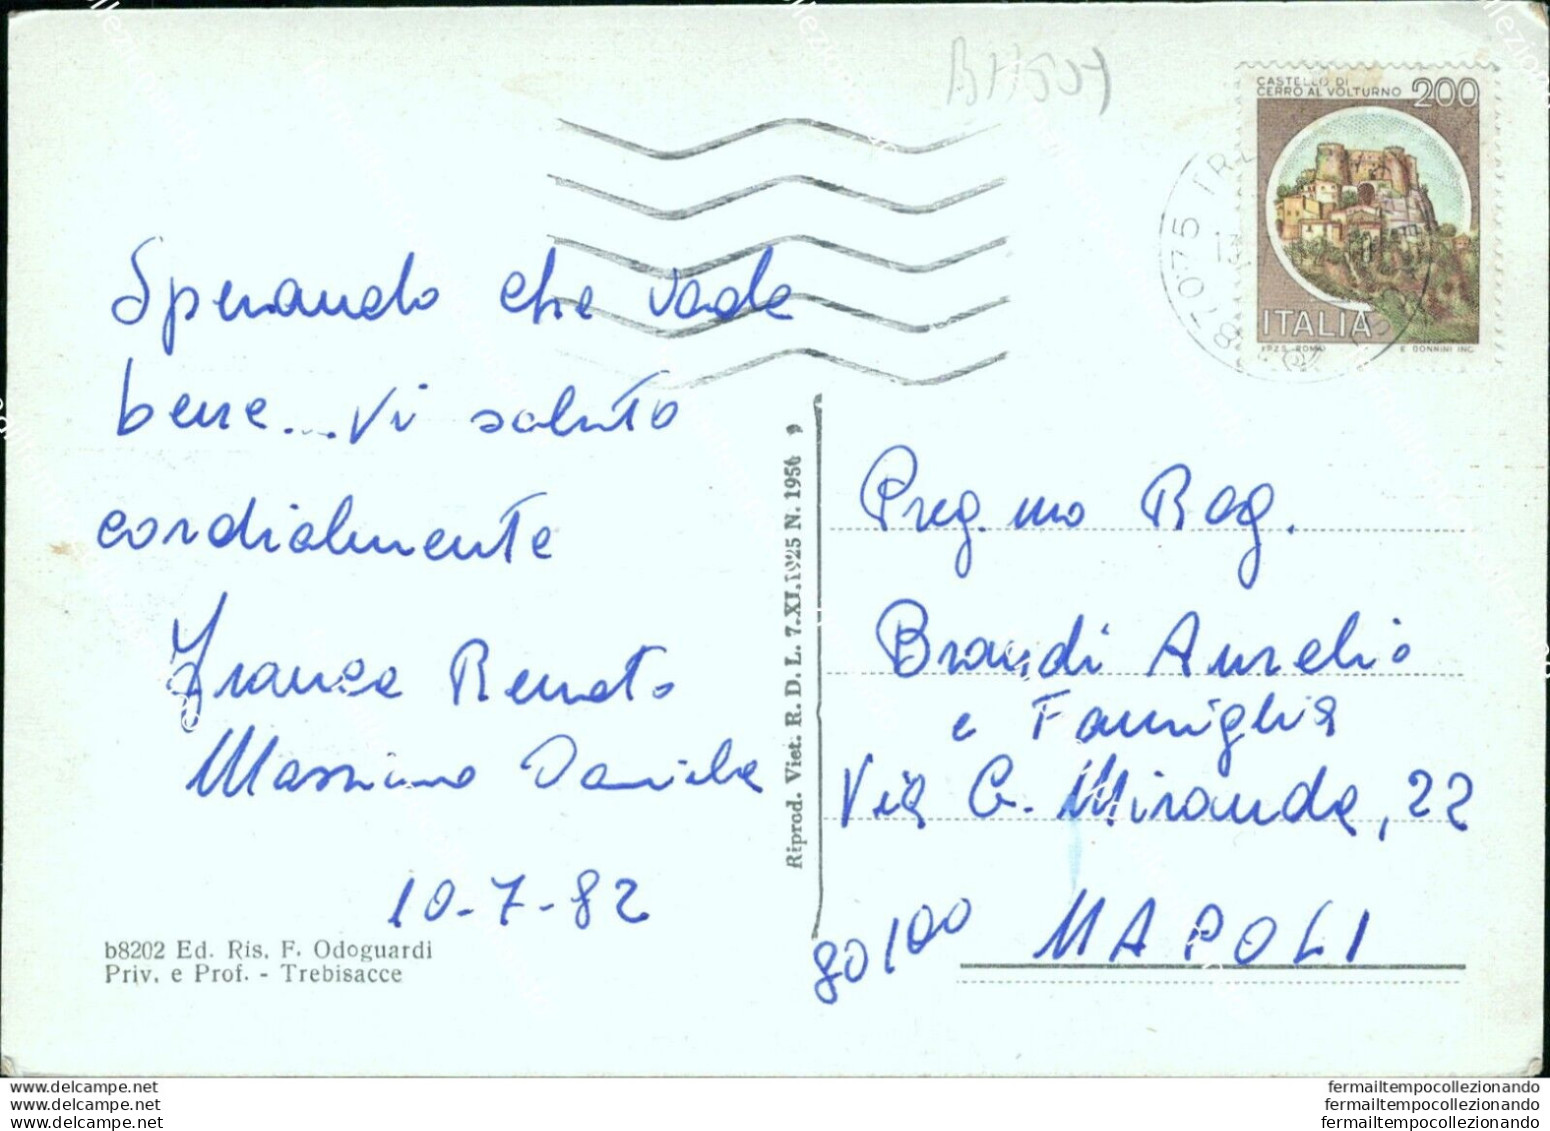 BH504
CASTELLO DI
CERRO AL VOLTURNO 200
ITALIA
I.P.Z.S. ROMA E DONNINI INC.
87075 TRE
Sperando che vada
bene... Vi saluto
cordialmente
Franca Renato
Massimo Daniela
10-7-82
b8202 Ed. Ris. F. Odoguardi
Priv. e Prof. - Trebisacce
Riprod. Viet. R. D. L. 7.XI.1925 N. 1950
Preg.mo Rag.
Brandi Aurelio
e Famiglia
Via G. Miranda, 22
80100 NAPOLI
www.delcampe.net
www.delcampe.net
www.delcampe.net
fermailtempocollezionando
fermailtempocollezionando
fermailtempocollezionando